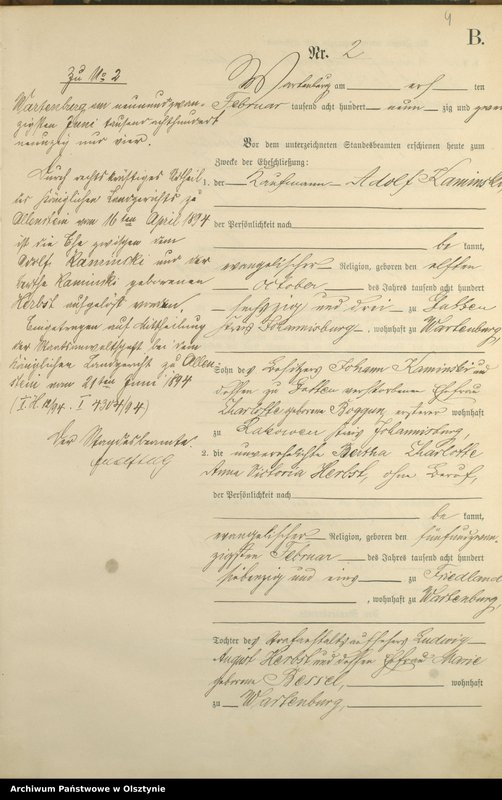 4
B.
Nr. 2
Zu No 2
Wartenburg am neunundzwan-
zigsten Juni tausend achthundert
neunzig und vier.
Durch rechtskräftiges Urtheil
des Königlichen Landgerichts zu
Allenstein vom 16ten April 1894
ist die Ehe zwischen dem
Adolf Kaminski und der
Bertha Kaminski geborenen
Herbst aufgelöst worden.
Eingetragen auf Mittheilung
der Staatsanwaltschaft bei dem
Königlichen Landgericht zu Allen-
stein vom 21ten Juni 1894
Der Standesbeamte
Wartenburg am ten
Februar tausend acht hundert neun zig und zwei
Vor dem unterzeichneten Standesbeamten erschienen heute zum
Zwecke der Eheschließung:
1. der Kaufmann Adolf Kaminski
der Persönlichkeit nach
be kannt,
evangelischer Religion, geboren den elften
October des Jahres tausend acht hundert
sechszig und drei zu
Kreis Johannisburg, wohnhaft zu Wartenburg,
Sohn des Besitzers Johann Kaminski und
dessen zu verstorbenen Ehefrau
Charlotte geborene Boggun, ersterer wohnhaft
zu Lakowen Kreis Johannisburg,
2. die unverehelichte Bertha Charlotte
Anna Victoria Herbst, ohne Beruf,
der Persönlichkeit nach
be kannt,
evangelischer Religion, geboren den fünfundzwan-
zigsten Februar des Jahres tausend acht hundert
siebenzig und eins zu Friedland
, wohnhaft zu Wartenburg
Tochter des Strafanstaltsaufsehers Ludwig
August Herbst und dessen Ehefrau Marie
geborene Bessel, wohnhaft
zu Wartenburg,
Archiwum Państwowe w Olsztynie